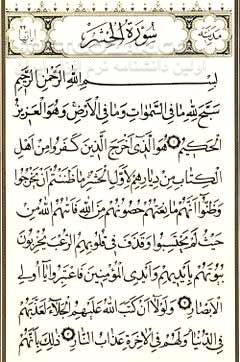 سُورَةُ الْحَشْرِ
مدنية
بِسْمِ اللَّهِ الرَّحْمَٰنِ الرَّحِيمِ
سَبَّحَ لِلَّهِ مَا فِي السَّمَٰوَاتِ وَمَا فِي الْأَرْضِ وَهُوَ الْعَزِيزُ
الْحَكِيمُ هُوَ الَّذِي أَخْرَجَ الَّذِينَ كَفَرُوا مِنْ أَهْلِ
الْكِتَابِ مِنْ دِيَارِهِمْ لِأَوَّلِ الْحَشْرِ مَا ظَنَنْتُمْ أَنْ يَخْرُجُوا
وَظَنُّوا أَنَّهُمْ مَانِعَتُهُمْ حُصُونُهُمْ مِنَ اللَّهِ فَأَتَاهُمُ اللَّهُ مِنْ
حَيْثُ لَمْ يَحْتَسِبُوا وَقَذَفَ فِي قُلُوبِهِمُ الرُّعْبَ يُخْرِبُونَ
بُيُوتَهُمْ بِأَيْدِيهِمْ وَأَيْدِي الْمُؤْمِنِينَ فَاعْتَبِرُوا يَا أُولِي
الْأَبْصَارِ وَلَوْلَا أَنْ كَتَبَ اللَّهُ عَلَيْهِمُ الْجَلَاءَ لَعَذَّبَهُمْ
فِي الدُّنْيَا وَلَهُمْ فِي الْآخِرَةِ عَذَابُ النَّارِ ذَٰلِكَ بِأَنَّهُمْ